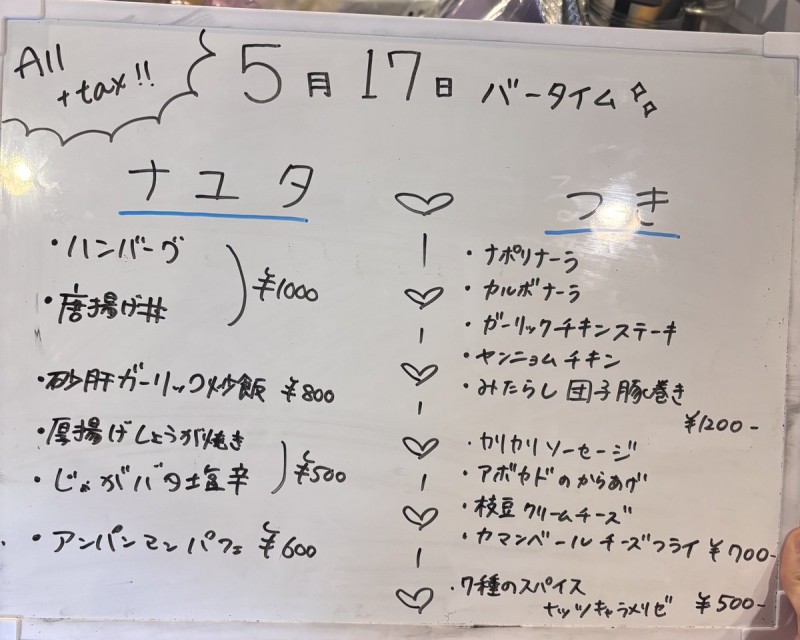 All
+tax!!
5月17日 バータイム
ナユタ
・ハンバーグ
・唐揚げ丼
¥1000
・砂肝ガーリック炒飯 ¥800
・厚揚げしょうが焼き
・じゃがバタ塩辛
¥500
・アンパンマンパフェ ¥600
つき
・ナポリナーラ
・カルボナーラ
・ガーリックチキンステーキ
・ヤンニョムチキン
・みたらし団子豚巻き
¥1200-
・カリカリソーセージ
・アボカドのからあげ
・枝豆クリームチーズ
・カマンベールチーズフライ ¥700-
・7種のスパイス
ナッツキャラメリゼ ¥500-